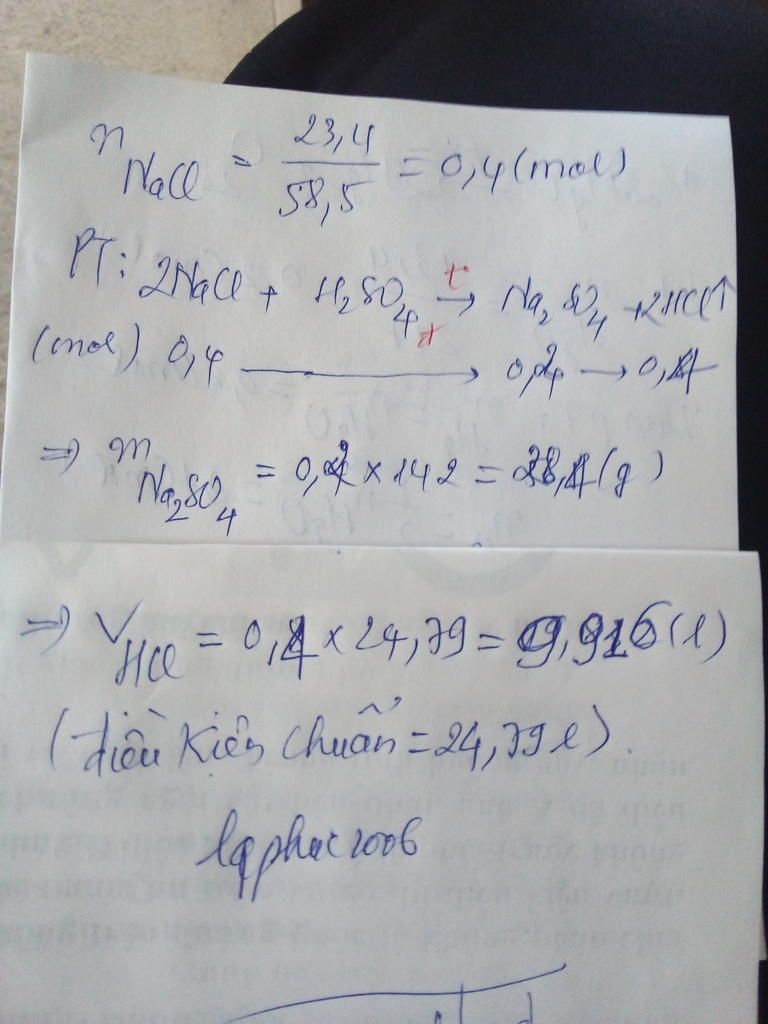 nNaCl = 23,4 / 58,5 = 0,4 (mol)
PT: 2NaCl + H2SO4 t→ Na2SO4 + 2HCl↑
(mol) 0,4 → 0,2 → 0,4
⇒ mNa2SO4 = 0,2 x 142 = 28,4 (g)
⇒ VHCl = 0,4 x 24,79 = 9,916 (l)
(điều kiện chuẩn = 24,79 l).
lqphuc2006